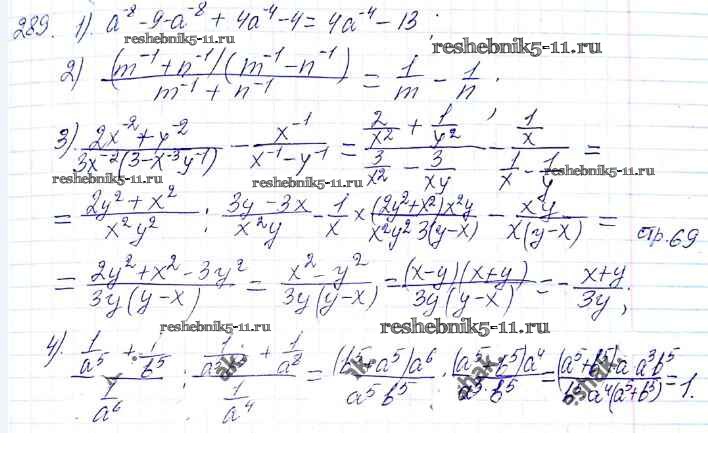 289. 1) a⁻⁸ - 9 - a⁻⁸ + 4a⁻⁴ - 4 = 4a⁻⁴ - 13;
reshebnik5-11.ru reshebnik5-11.ru
2) (m⁻¹ + n⁻¹)(m⁻¹ - n⁻¹) / (m⁻¹ + n⁻¹) = 1/m - 1/n.
3) (2x⁻² + y⁻²) / (3x⁻²(3 - x⁻³y⁻¹)) - x⁻¹ / (x⁻¹ - y⁻¹) = (2/x² + 1/y²) / (3/x² - 3/xy) - (1/x) / (1/x - 1/y) =
reshebnik5-11.ru reshebnik5-11.ru
= (2y² + x²) / (x²y²) : (3y - 3x) / (x²y) - 1/x × (2y² + x²)x²y / (x²y² 3(y - x)) - xy / (x(y - x)) =
стр.69
= (2y² + x² - 3y²) / (3y(y - x)) = (x² - y²) / (3y(y - x)) = (x - y)(x + y) / (3y(y - x)) = - (x + y) / 3y;
reshebnik5-11.ru reshebnik5-11.ru
4) (1/a⁵ + 1/b⁵) / (1/a⁶) : / (1/a⁴) = (b⁵ + a⁵)a⁶ / (a⁵b⁵) : = 1.